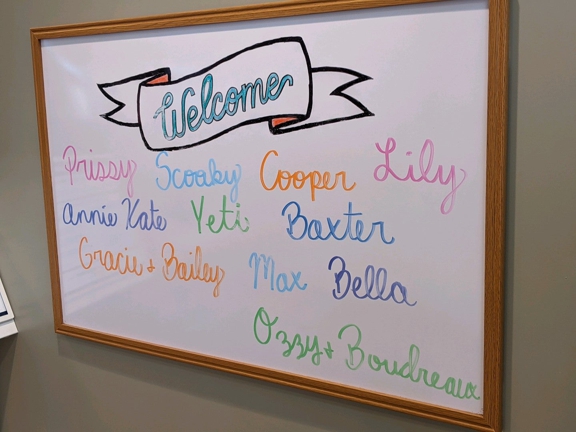 Welcome
Prissy Scooby Cooper Lily
Annie Kate Yeti Baxter
Gracie + Bailey Max Bella
Ozzy + Boudreaux